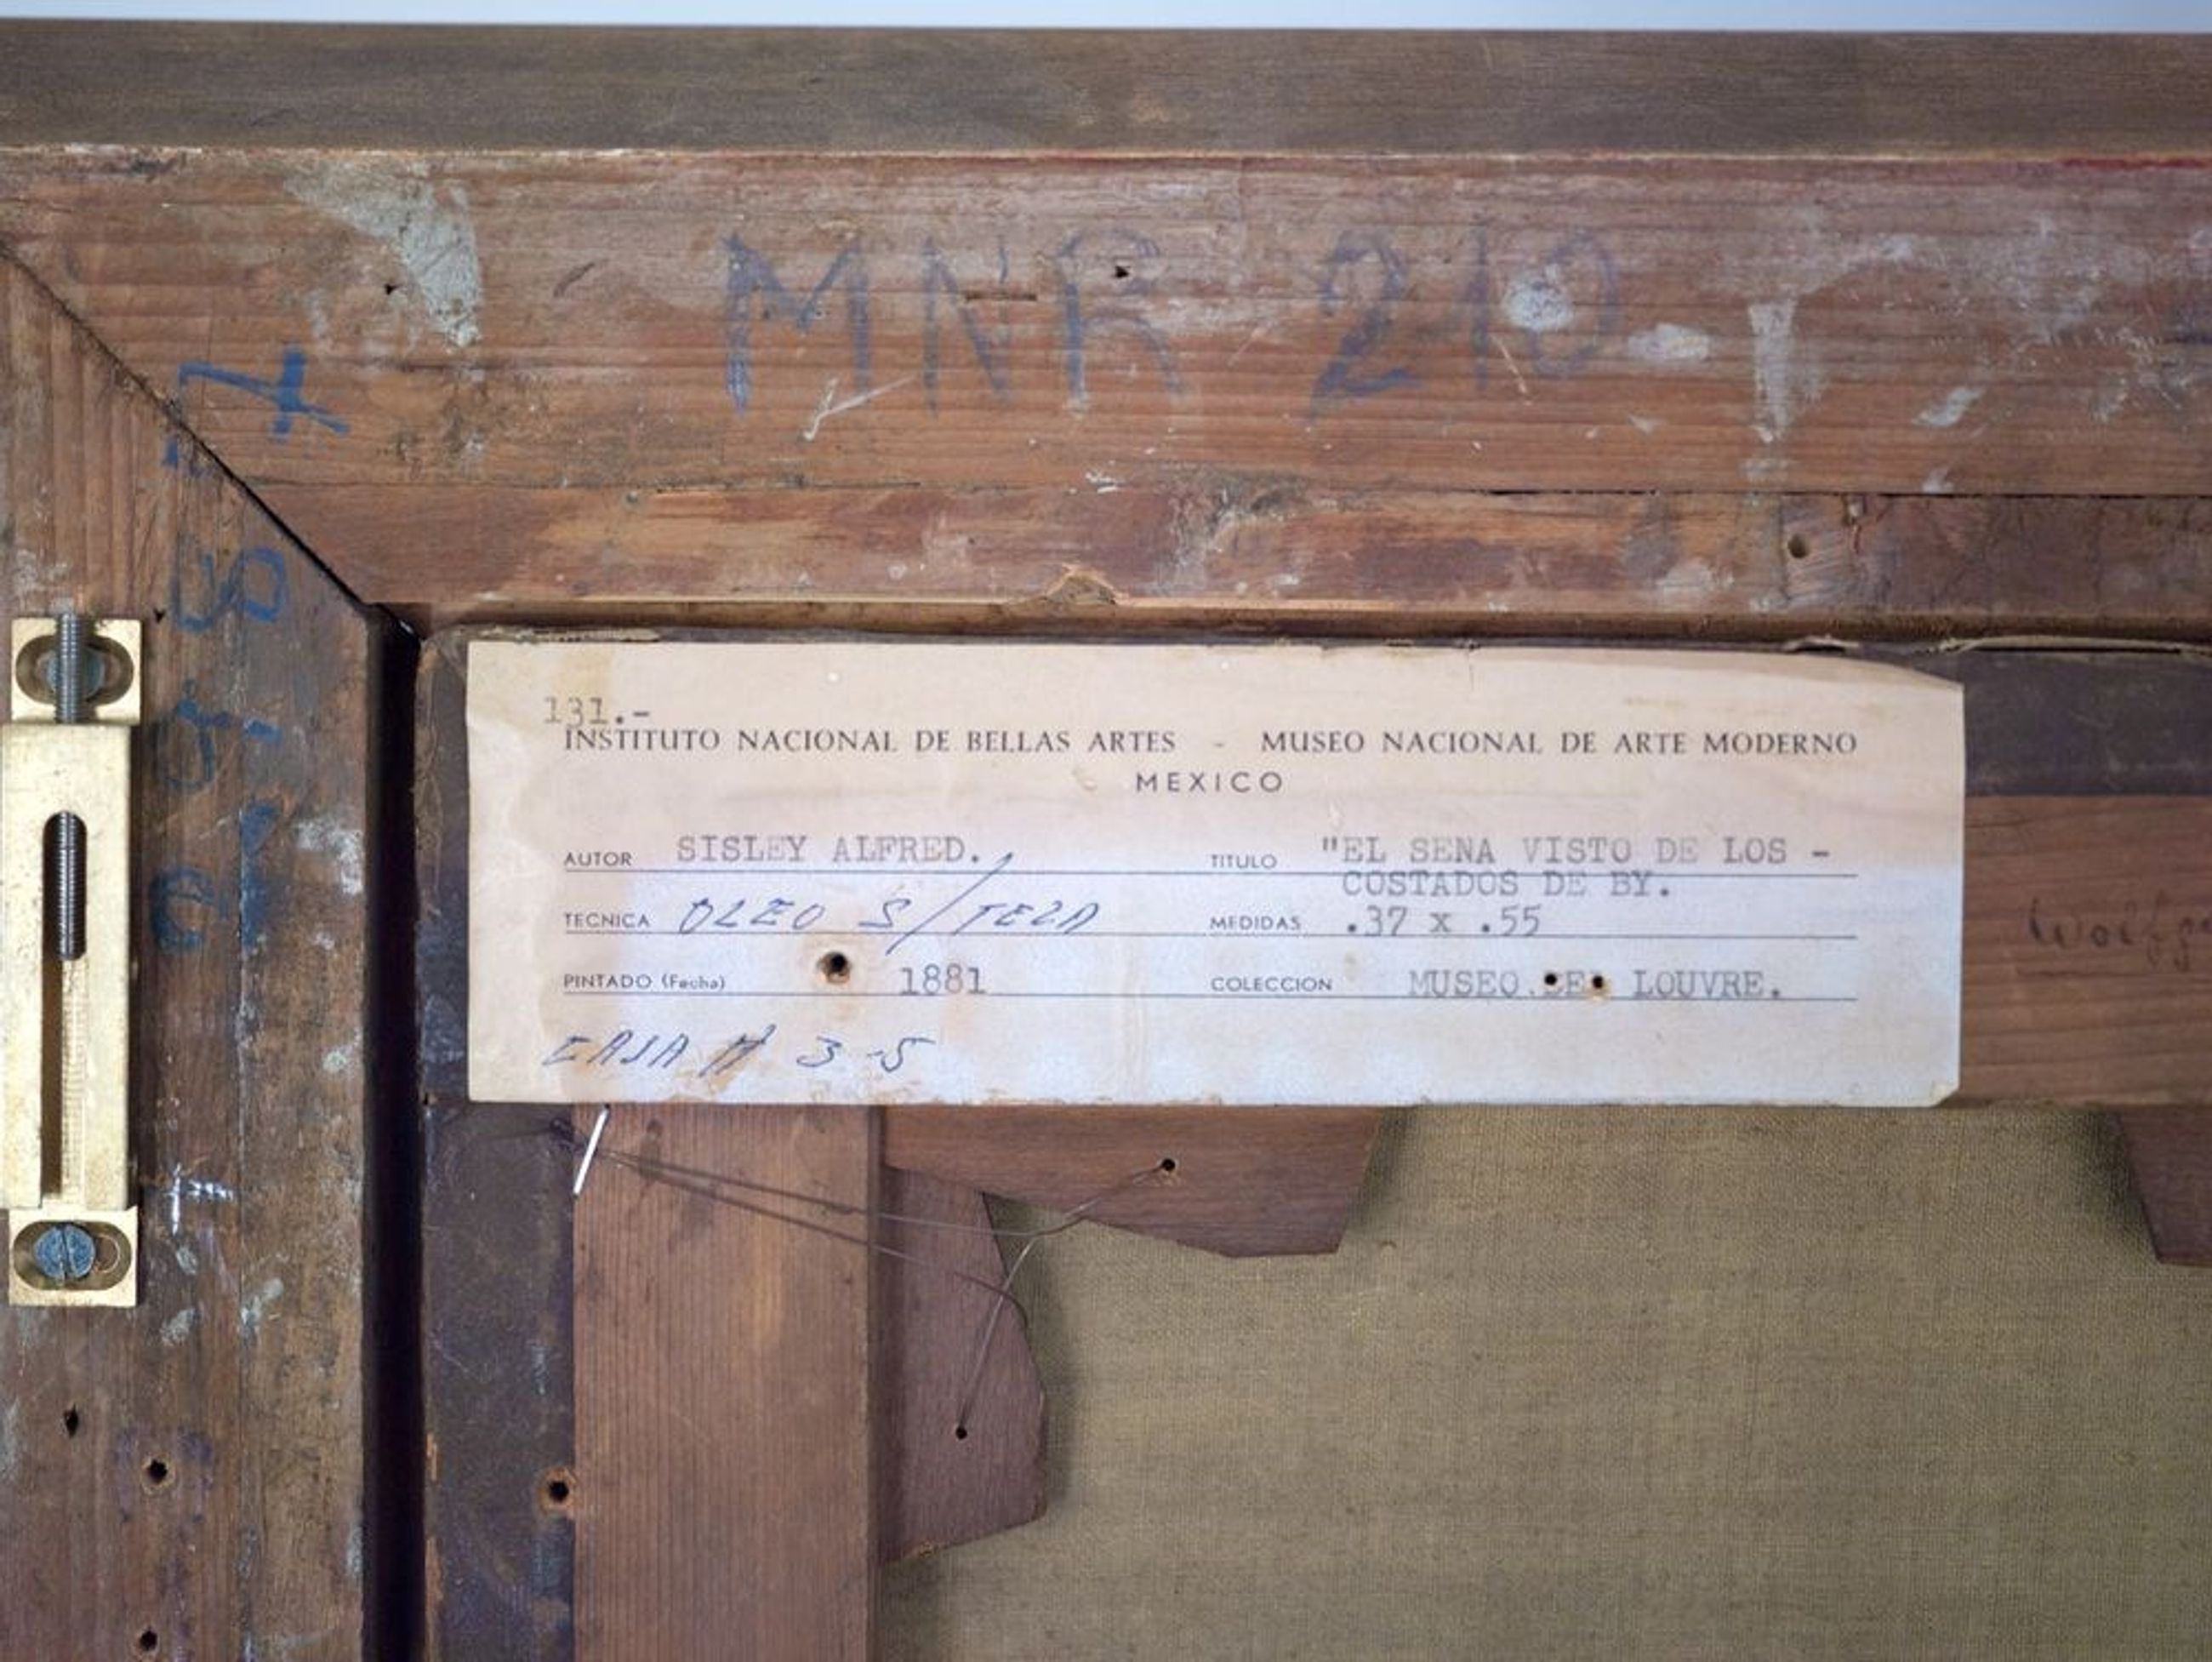 MNR 210
131.-
INSTITUTO NACIONAL DE BELLAS ARTES - MUSEO NACIONAL DE ARTE MODERNO
MEXICO
AUTOR SISLEY ALFRED. TITULO "EL SENA VISTO DE LOS -
COSTADOS DE BY.
TECNICA OLEO S/TELA MEDIDAS .37 x .55
PINTADO (Fecha) 1881 COLECCION MUSEO DEL LOUVRE.
CAJA # 3-5